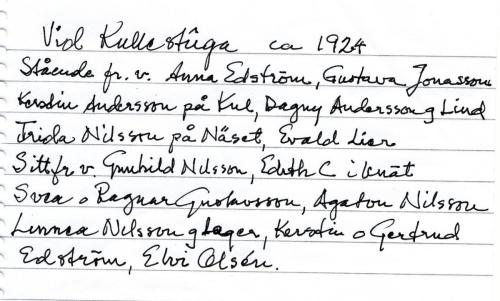 Vid Kullestûga ca 1924
Stående fr. v. Anna Edström, Gustava Jonasson
Kerstin Andersson på Kul, Dagny Andersson g Lind
Frida Nilsson på Näset, Evald Lier
Sitt fr v. Gunhild Nilsson, Edith C i
Svea o Ragnar Gustavsson, Agaton Nilsson
Linnea Nilsson g Lager, Kerstin o Gertrud
Edström, Elvi Olsén.